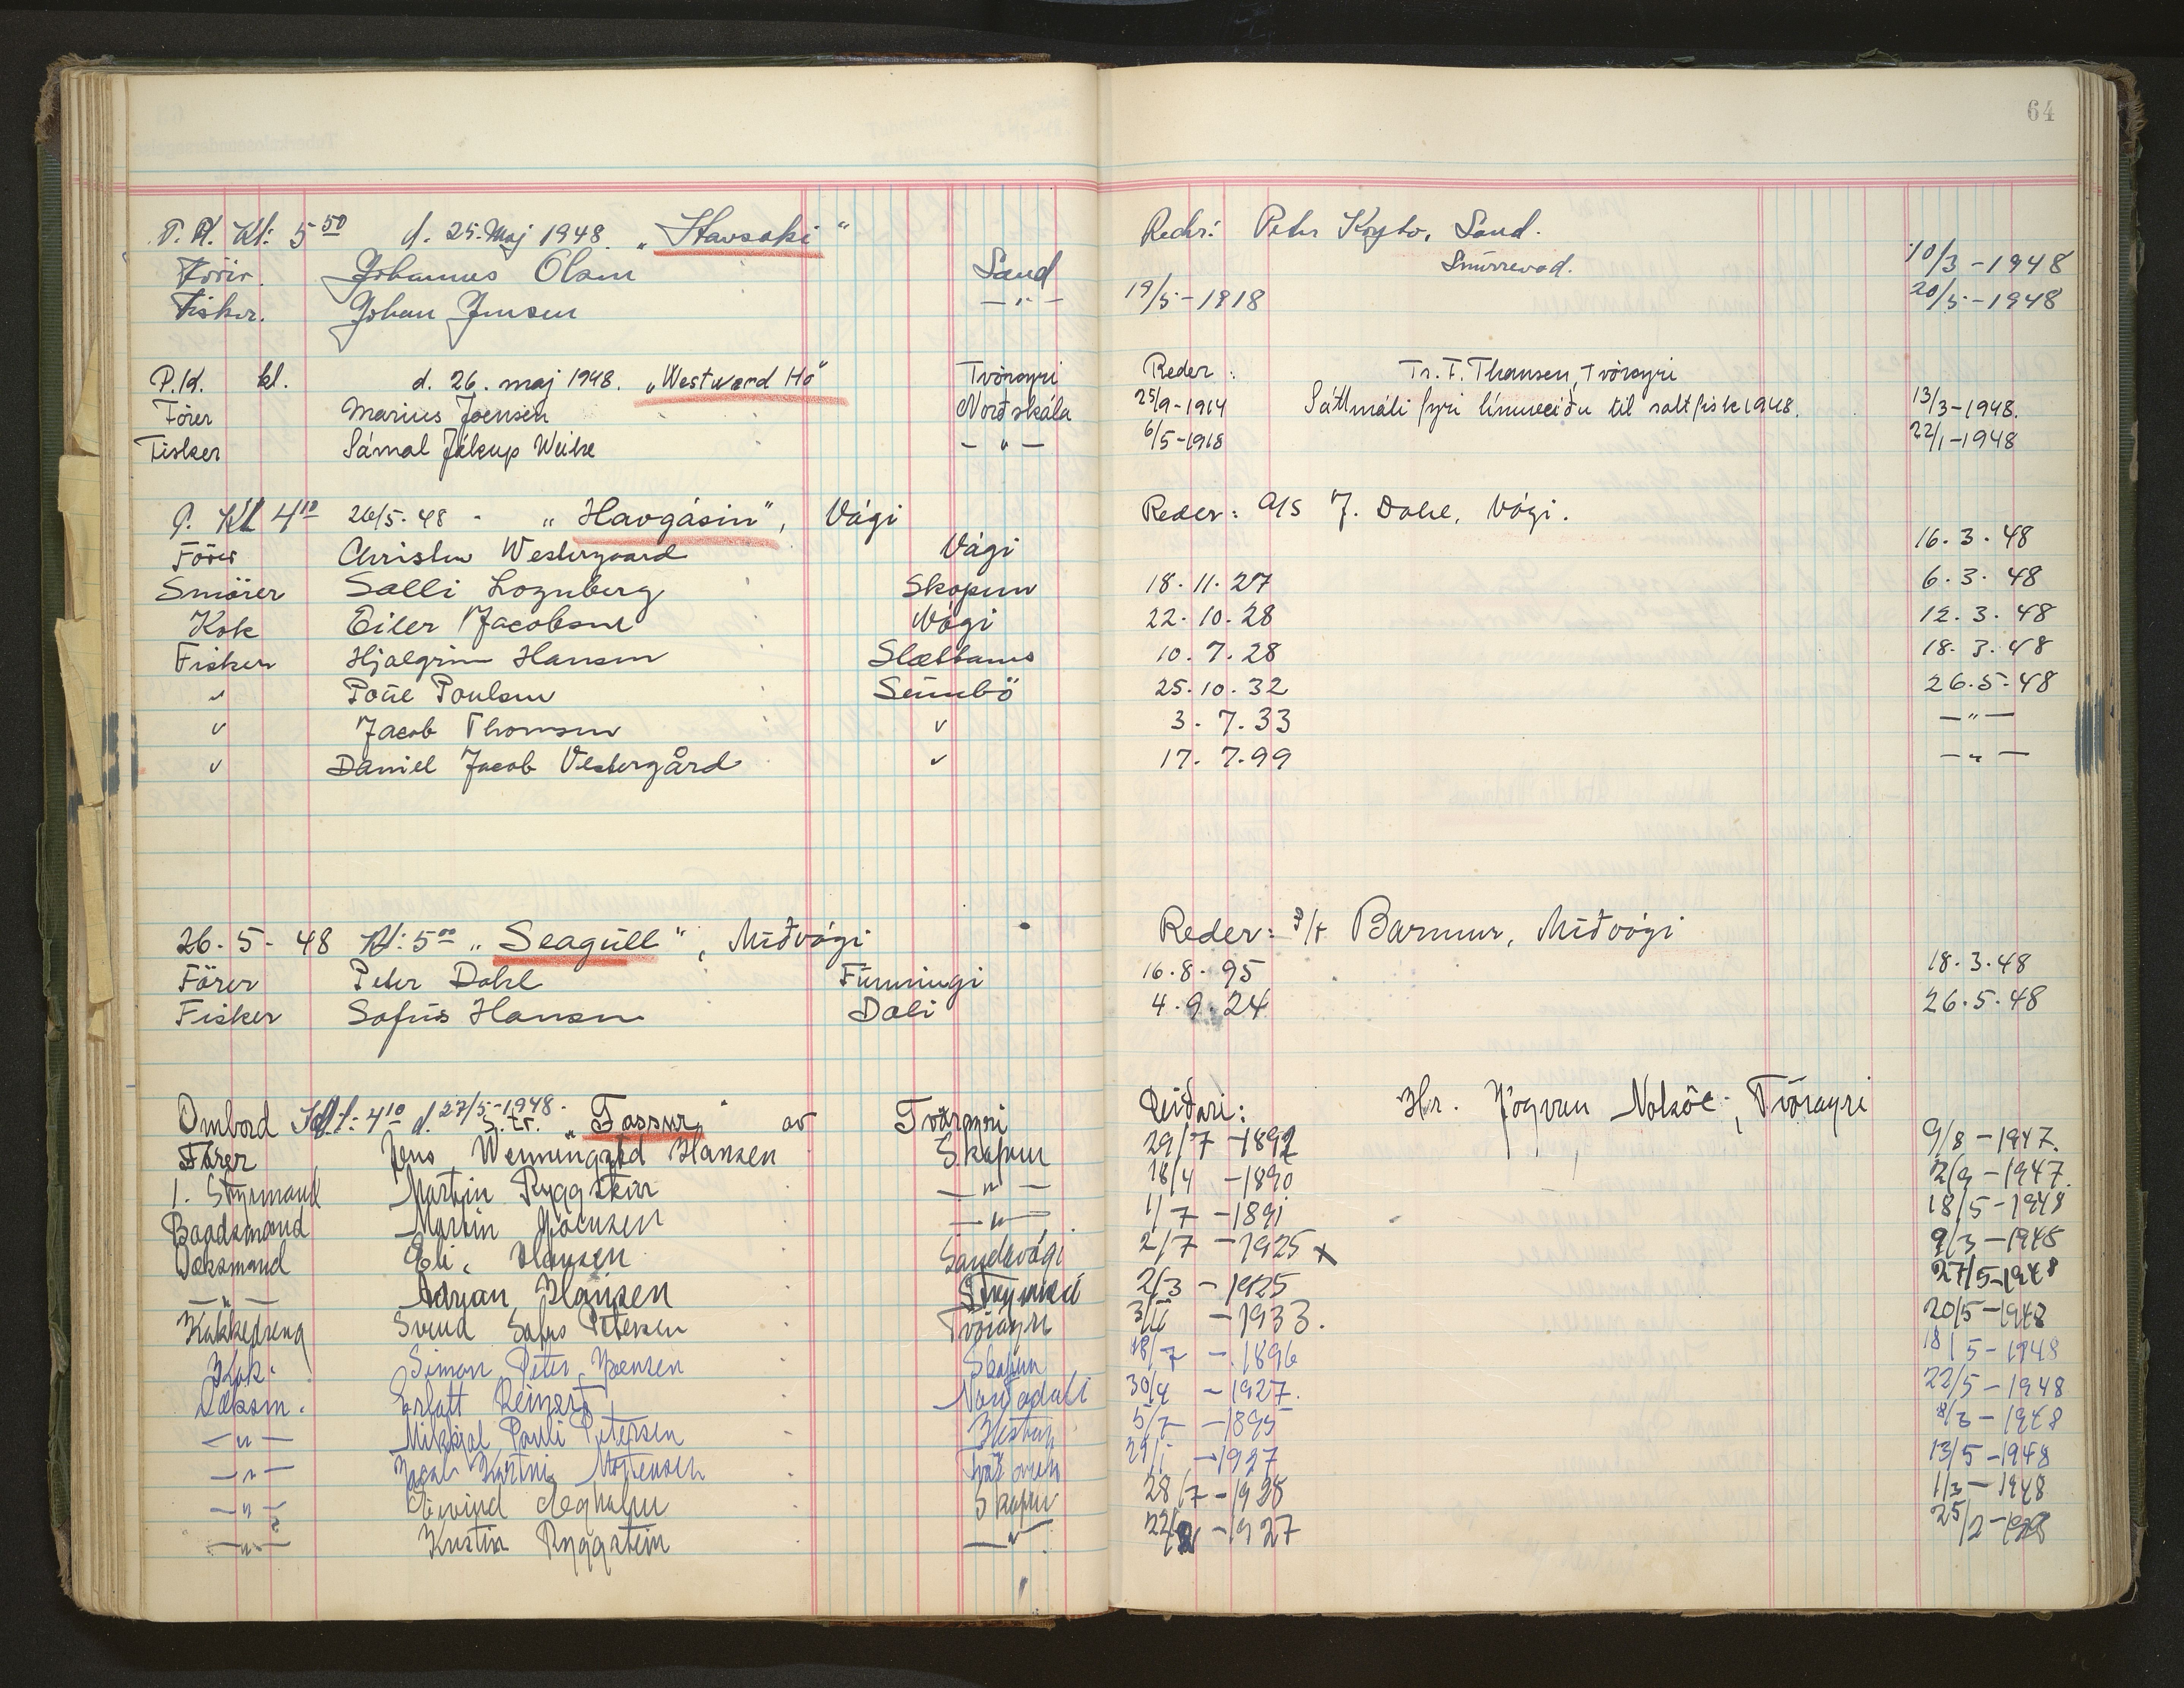 64
P. K. Kl: 5 50 d. 25. Maj 1948. „Stavsaki“ Reder: Peter Sand.
Förer. Johannus Olsen Sand Snurrevod. 10/3 - 1948
Fisker. Johan Jensen — " — 19/5 - 1918 20/5 - 1948
P.K. kl. d. 26. maj 1948. „Westward Ho“ Tvöroyri Reder: Tr. F. Thomsen, Tvöroyri
Förer Marius Joensen Norðskála 25/9-1914 Sáttmáli fyri línuveiðu til saltfisk 1948. 13/3-1948.
Fisker Sámal Jákup Weihe — " — 6/5-1918 22/1-1948
P. Kl 4 10 26/5-48 - „Havgásin“, Vági Reder: A/S J. Dahl, Vági.
Förer Christen Westergaard Vági 16. 3. 48
Smörer Salli Lognberg Skopun 18. 11. 27 6. 3. 48
Kok Eiler Jacobsen Vági 22. 10. 28 12. 3. 48
Fisker Hjalgrim Hansen Slættanes 10. 7. 28 18. 3. 48
" Poul Poulsen Sumbö 25. 10. 32 26. 5. 48
" Jacob Thomsen " 3. 7. 33 — " —
" Daniel Jacob Vestergård " 17. 7. 99 — " —
26. 5. 48 Kl: 5 00 „Seagull“, Miðvági Reder: P/F Barmur, Miðvági
Förer Peter Dahl Funningi 16. 8. 95 18. 3. 48
Fisker Sofus Hansen Dali 4. 9. 24 26. 5. 48
Ombord Kl: 4 10 d. 27/5-1948. S.tr. „Tassur“ av Tvöroyri Reiðari: Hr. Jógvan Nolsöe, Tvöroyri
Förer Jens Wenningsted Hansen Skopun 29/7 - 1892 9/8 - 1947.
1. Styrmand Martin Ryggstein — " — 18/4 - 1890 2/9 - 1947.
Baadsmand Martin Joensen — " — 1/7 - 1891 18/5 - 1948
Dæksmand Eli. Hansen Sandavági 2/7 - 1925 x 9/3 - 1948
— " — Adrian Hansen Strymnes 2/3 - 1925 27/5-1948
Kokkedreng Svend Sofus Petersen Tvöroyri - 1933. 20/5 - 1948
Kok. Simon Peter Joensen Skopun 18/7 - 1896 18/5 - 1948
Dæksm. Erlatt Reinert Norðadali 30/4 - 1927. 22/5 - 1948
— " — Mikkjal Pauli Petersen Hestur 5/7 - 1895 8/3 - 1948
— " — Mortensen 29/1 - 1927 13/5 - 1948
— " — Eivind Skopun 28/7 - 1928 1/3 - 1948
— " — Kristin Ryggstein — " — - 1927 25/2 - 1948